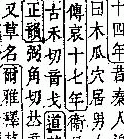 十四年晉秦人
曰木瓜穴居男
傳哀十七年衛
古禾切音戈道
正韻弼角切竝
又草名爾雅釋